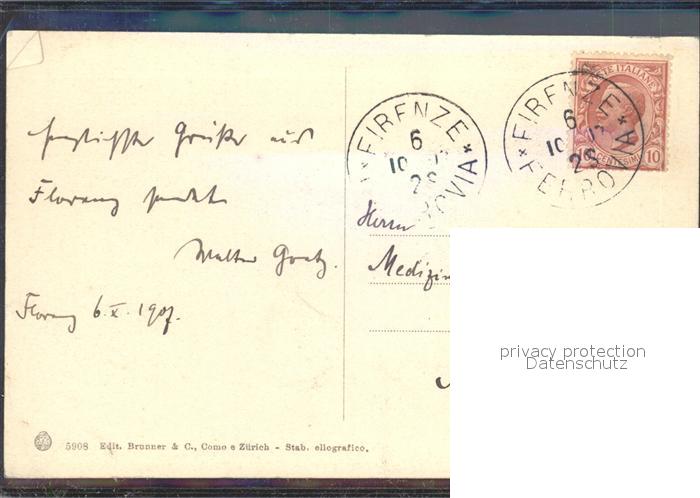 herzlichste Grüße aus
Florenz sendet
Walter Goetz.
Florenz 6.X.1907.
FIRENZE
6
10
FERROVIA
FIRENZE
6
10
FERROVIA
POSTE ITALIANE
CENTESIMI 10
Herrn
Medizin
privacy protection
Datenschutz
5908 Edit. Brunner & C., Como e Zürich - Stab. eliografico.